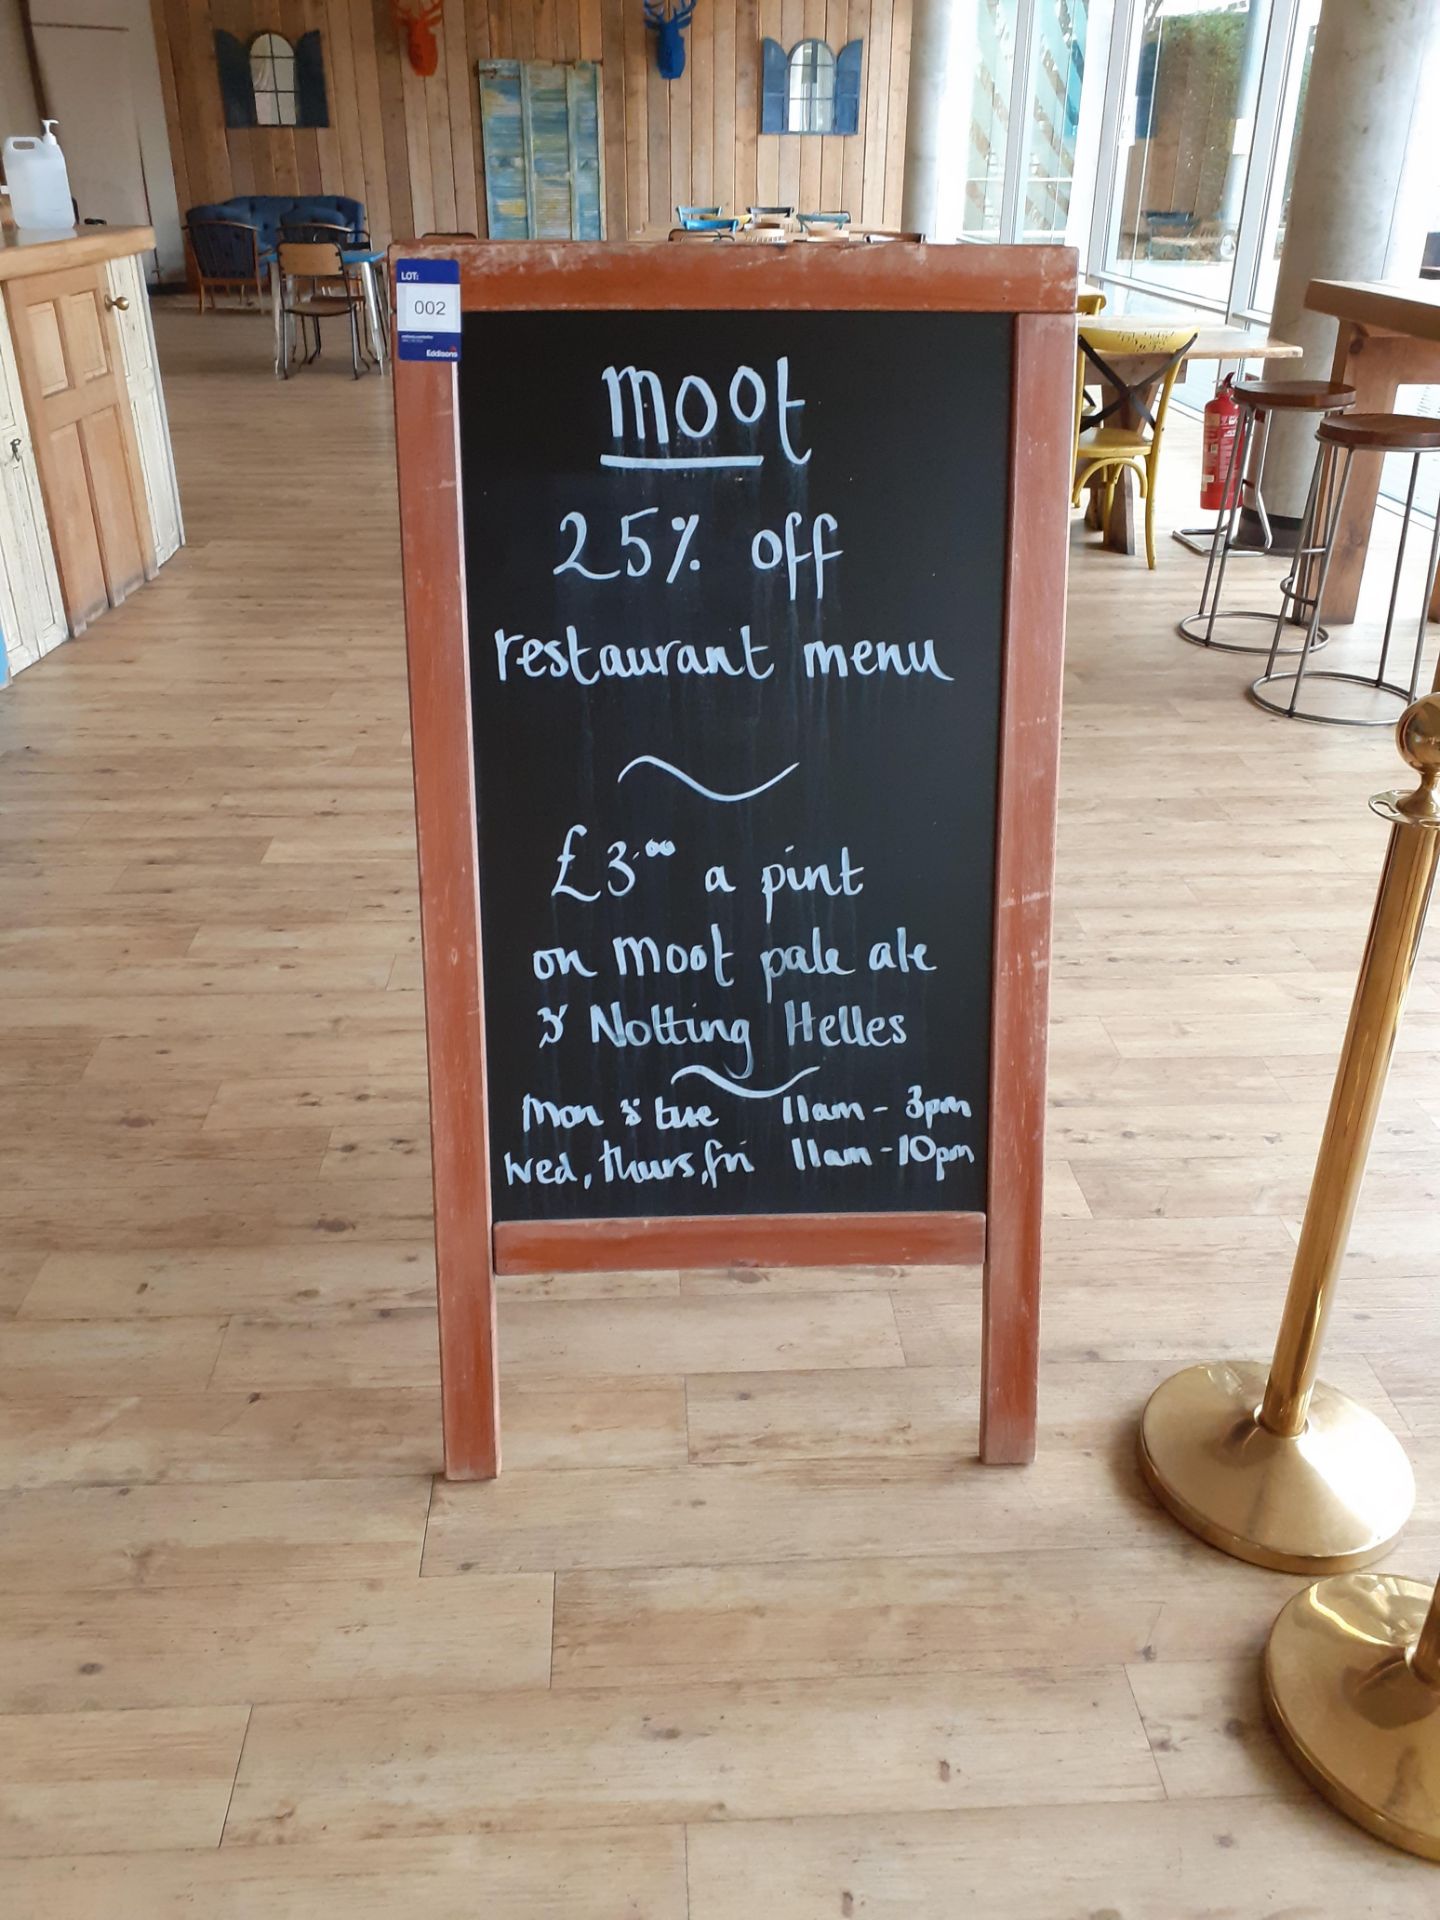 LOT:
002
Eddisons
moot
25% off
restaurant menu
£3.00 a pint
on moot pale ale
& Notting Helles
Mon & tue 11am - 3pm
Wed, thurs, fri 11am - 10pm